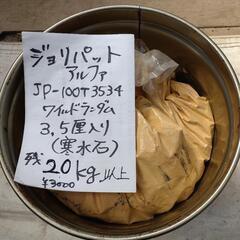 ジョリパット
アルファ
JP-100T3534
ワイルドランダム
3,5厘入り
(寒水石)
残 20kg以上
¥3000